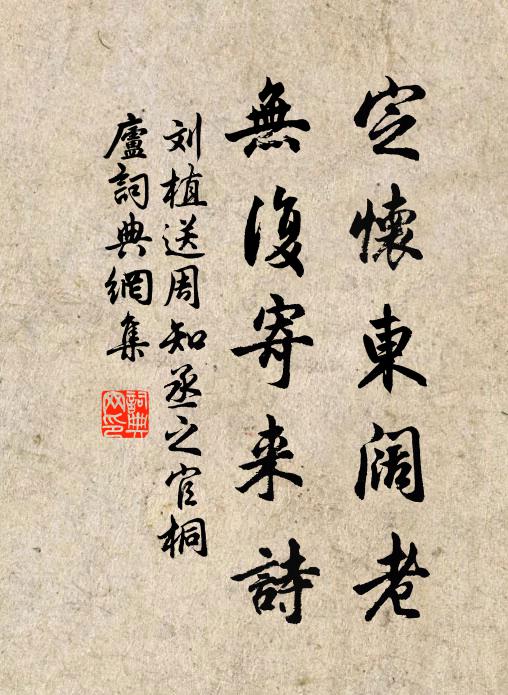 定懷東阔老
無復寄来詩
刘植送周知丞之官桐
廬詞典網集
詞典
网印